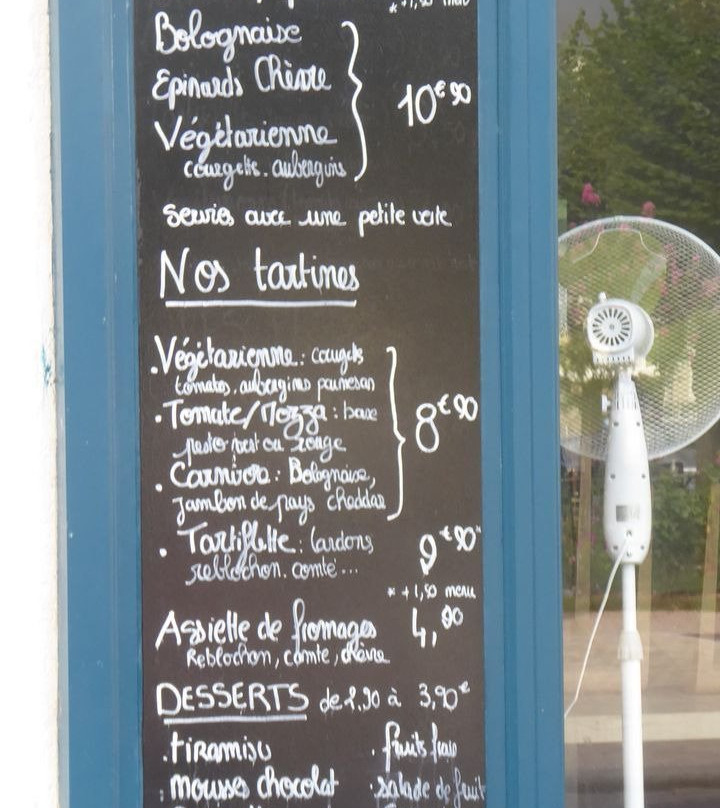 * +1,50 menu
Bolognaise
Epinards Chèvre
10€90
Végétarienne
courgette. aubergins
servies avec une petite verte
Nos tartines
. Végétarienne : courgets
tomates. aubergins parmesan
. Tomate/Mozza : base
pesto vert ou rouge
8€90
. Carnivore : Bolognaise,
jambon de pays cheddar
. Tartiflette : lardons,
reblochon. comté...
9€90*
* +1,50 menu
Assiette de fromages
4,90
Reblochon, comté, chèvre
DESSERTS de 2,90 à 3,90€
. tiramisu . fruits frais
. mousse chocolat . salade de fruit